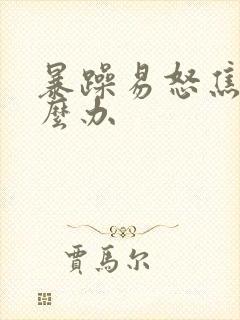 暴躁易怒焦
麼办
賈馬尔